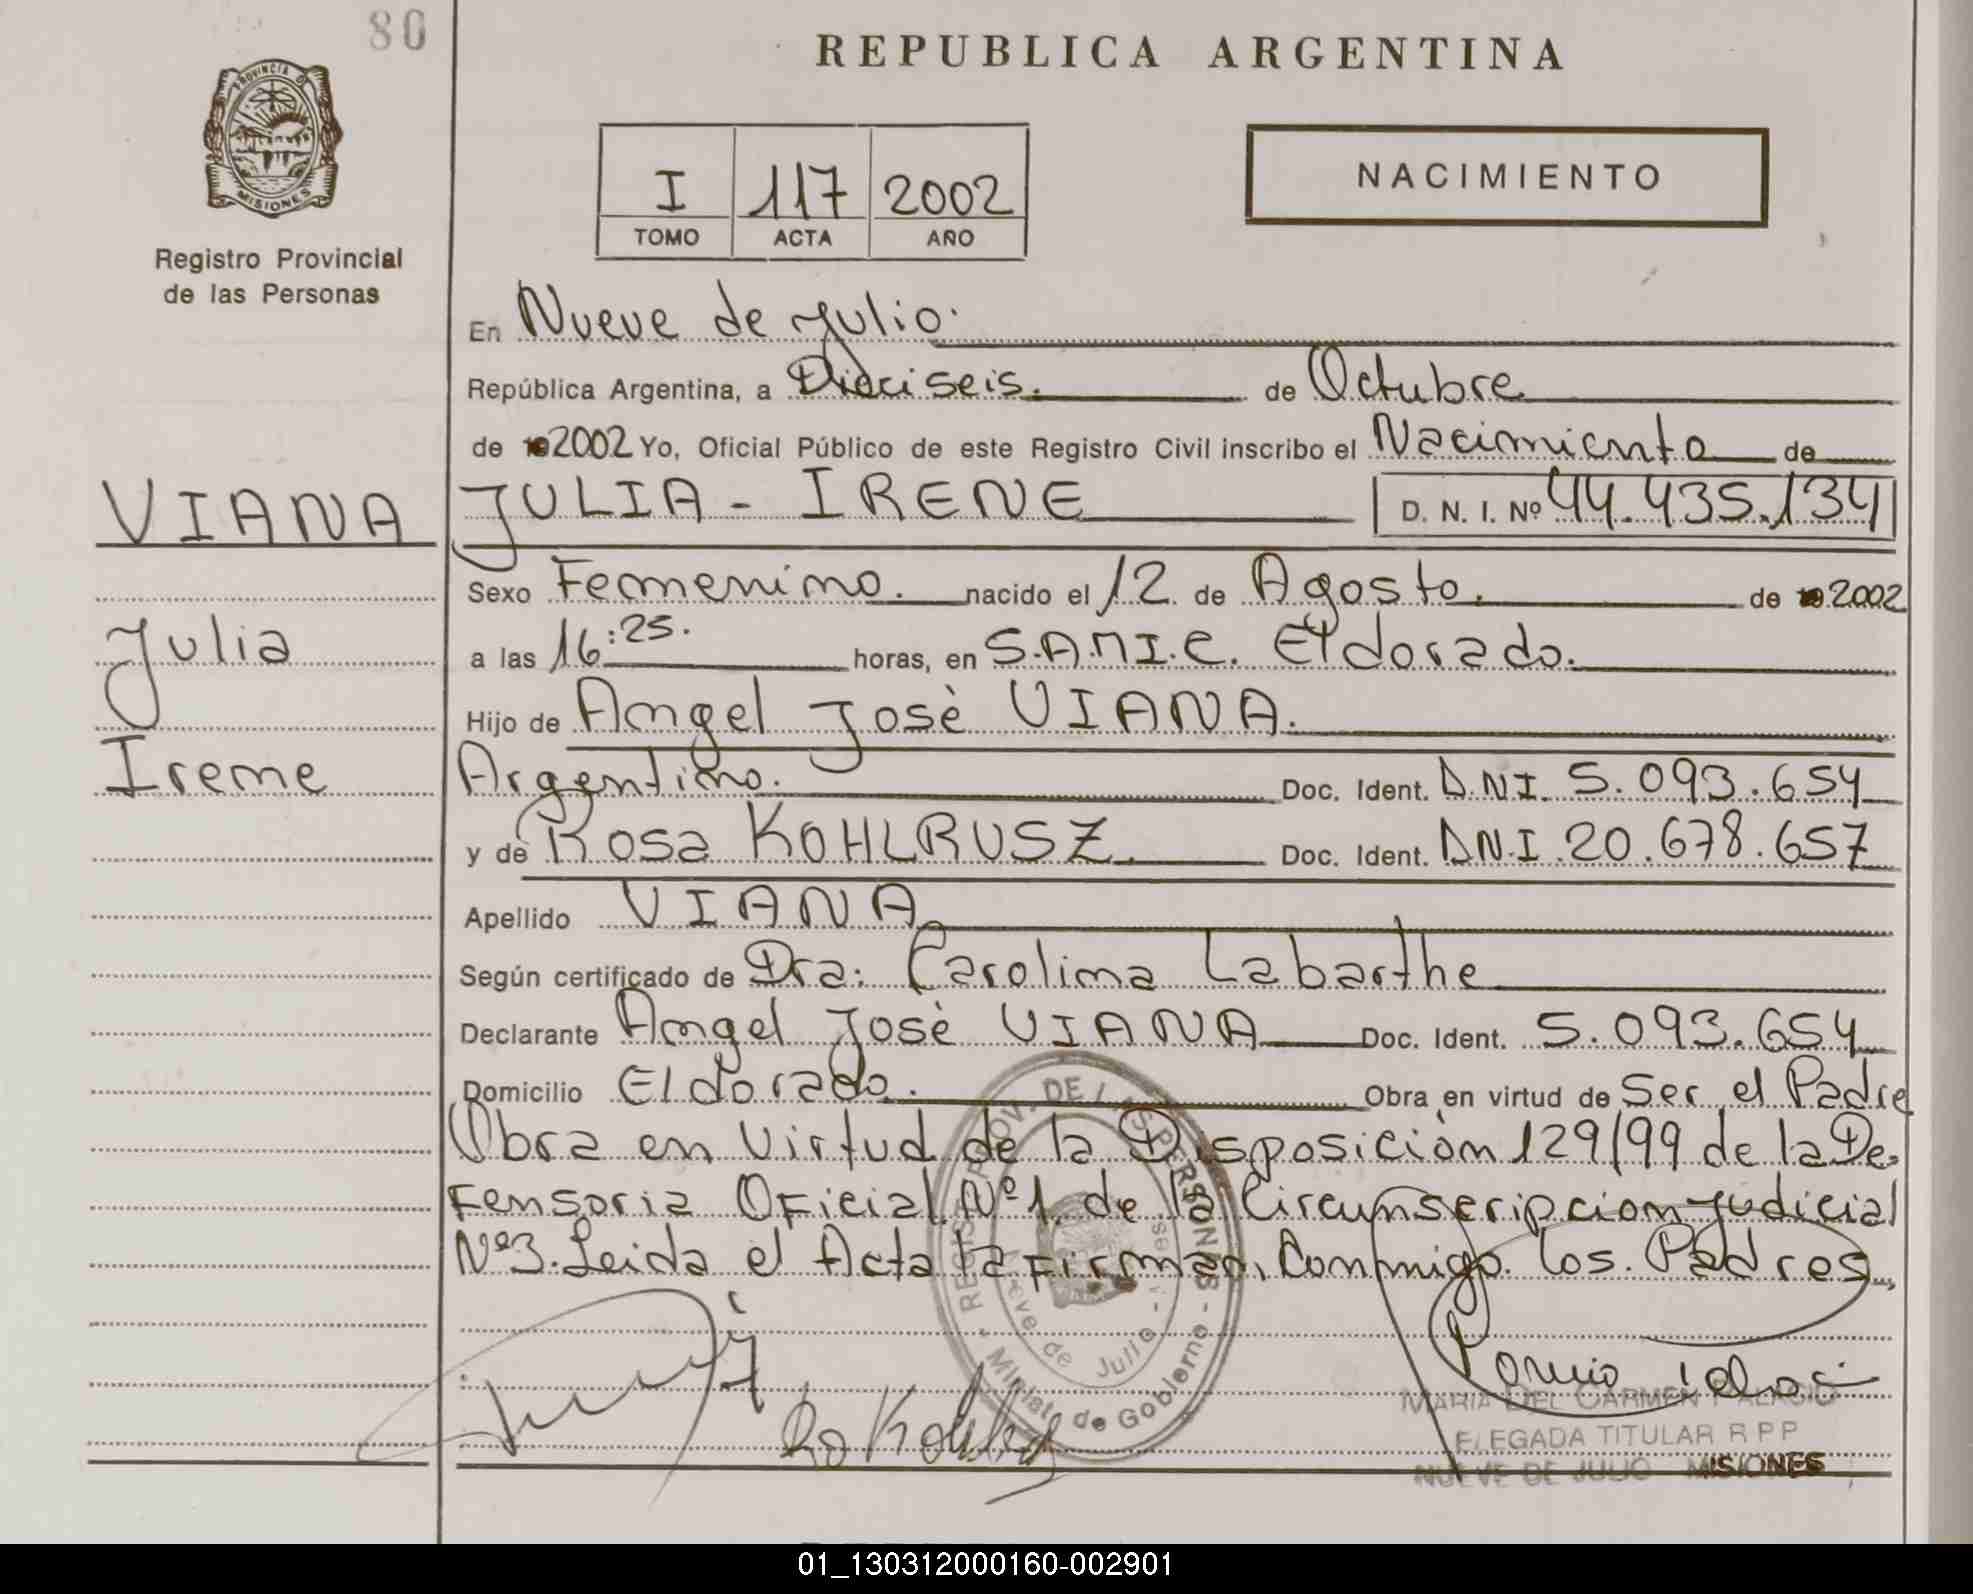 80
PROVINCIA D
MISIONES
Registro Provincial
de las Personas
REPUBLICA ARGENTINA
I 117 2002
TOMO ACTA AÑO
NACIMIENTO
En Nueve de Julio.
República Argentina, a Dieciseis. de Octubre
de 19 2002 Yo, Oficial Público de este Registro Civil inscribo el Nacimiento de
VIANA
JULIA - IRENE D. N. I. Nº 44.435.134
Sexo Femenino. nacido el 12 de Agosto. de 19 2002
Julia
a las 16:25. horas, en S.A.M.I.C. Eldorado.
Hijo de Angel Josè VIANA.
Irene
Argentino. Doc. Ident. D.N.I. 5.093.654
y de Rosa KOHLRUSZ. Doc. Ident. D.N.I. 20.678.657
Apellido VIANA
Según certificado de Dra: Carolina Labarthe
Declarante Angel Josè VIANA Doc. Ident. 5.093.654
Domicilio Eldorado. Obra en virtud de Ser el Padre
Obra en Virtud de la Disposición 129/99 de la De-
fensoria Oficial Nº 1 de la Circunscripcion Judicial
Nº3. Leida el Acta la Firman, Conmigo los Padres
REGIST PROV. DE LAS PERSONAS
Nueve de Julio
Minist. de Gobierno
MARIA DEL CARMEN PALACIO
DELEGADA TITULAR R P P
NUEVE DE JULIO MISIONES
01_130312000160-002901